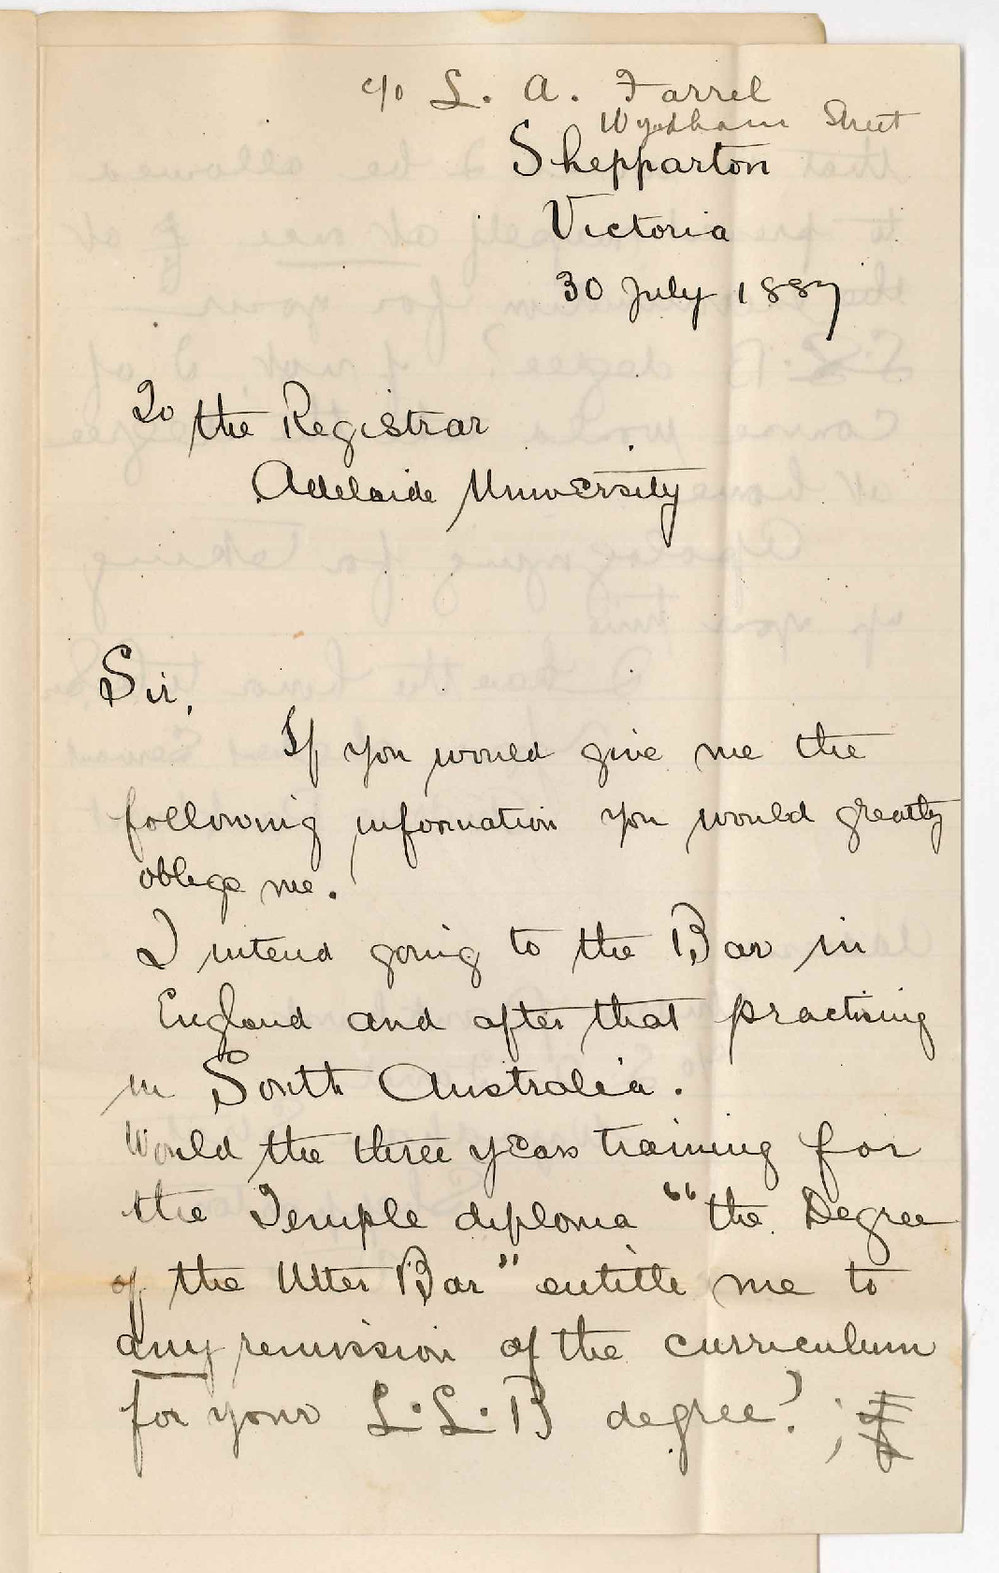 c/o L. A. Farrel
Wyndham Street
Shepparton
Victoria
30 July 1887
To the Registrar
Adelaide University
Sir,
If you would give me the
following information you would greatly
oblige me.
I intend going to the Bar in
England and after that practising
in South Australia.
Would the three years training for
the Temple diploma "the Degree
of the Utter Bar" entitle me to
any remission of the curriculum
for your L.L.B degree? ; if